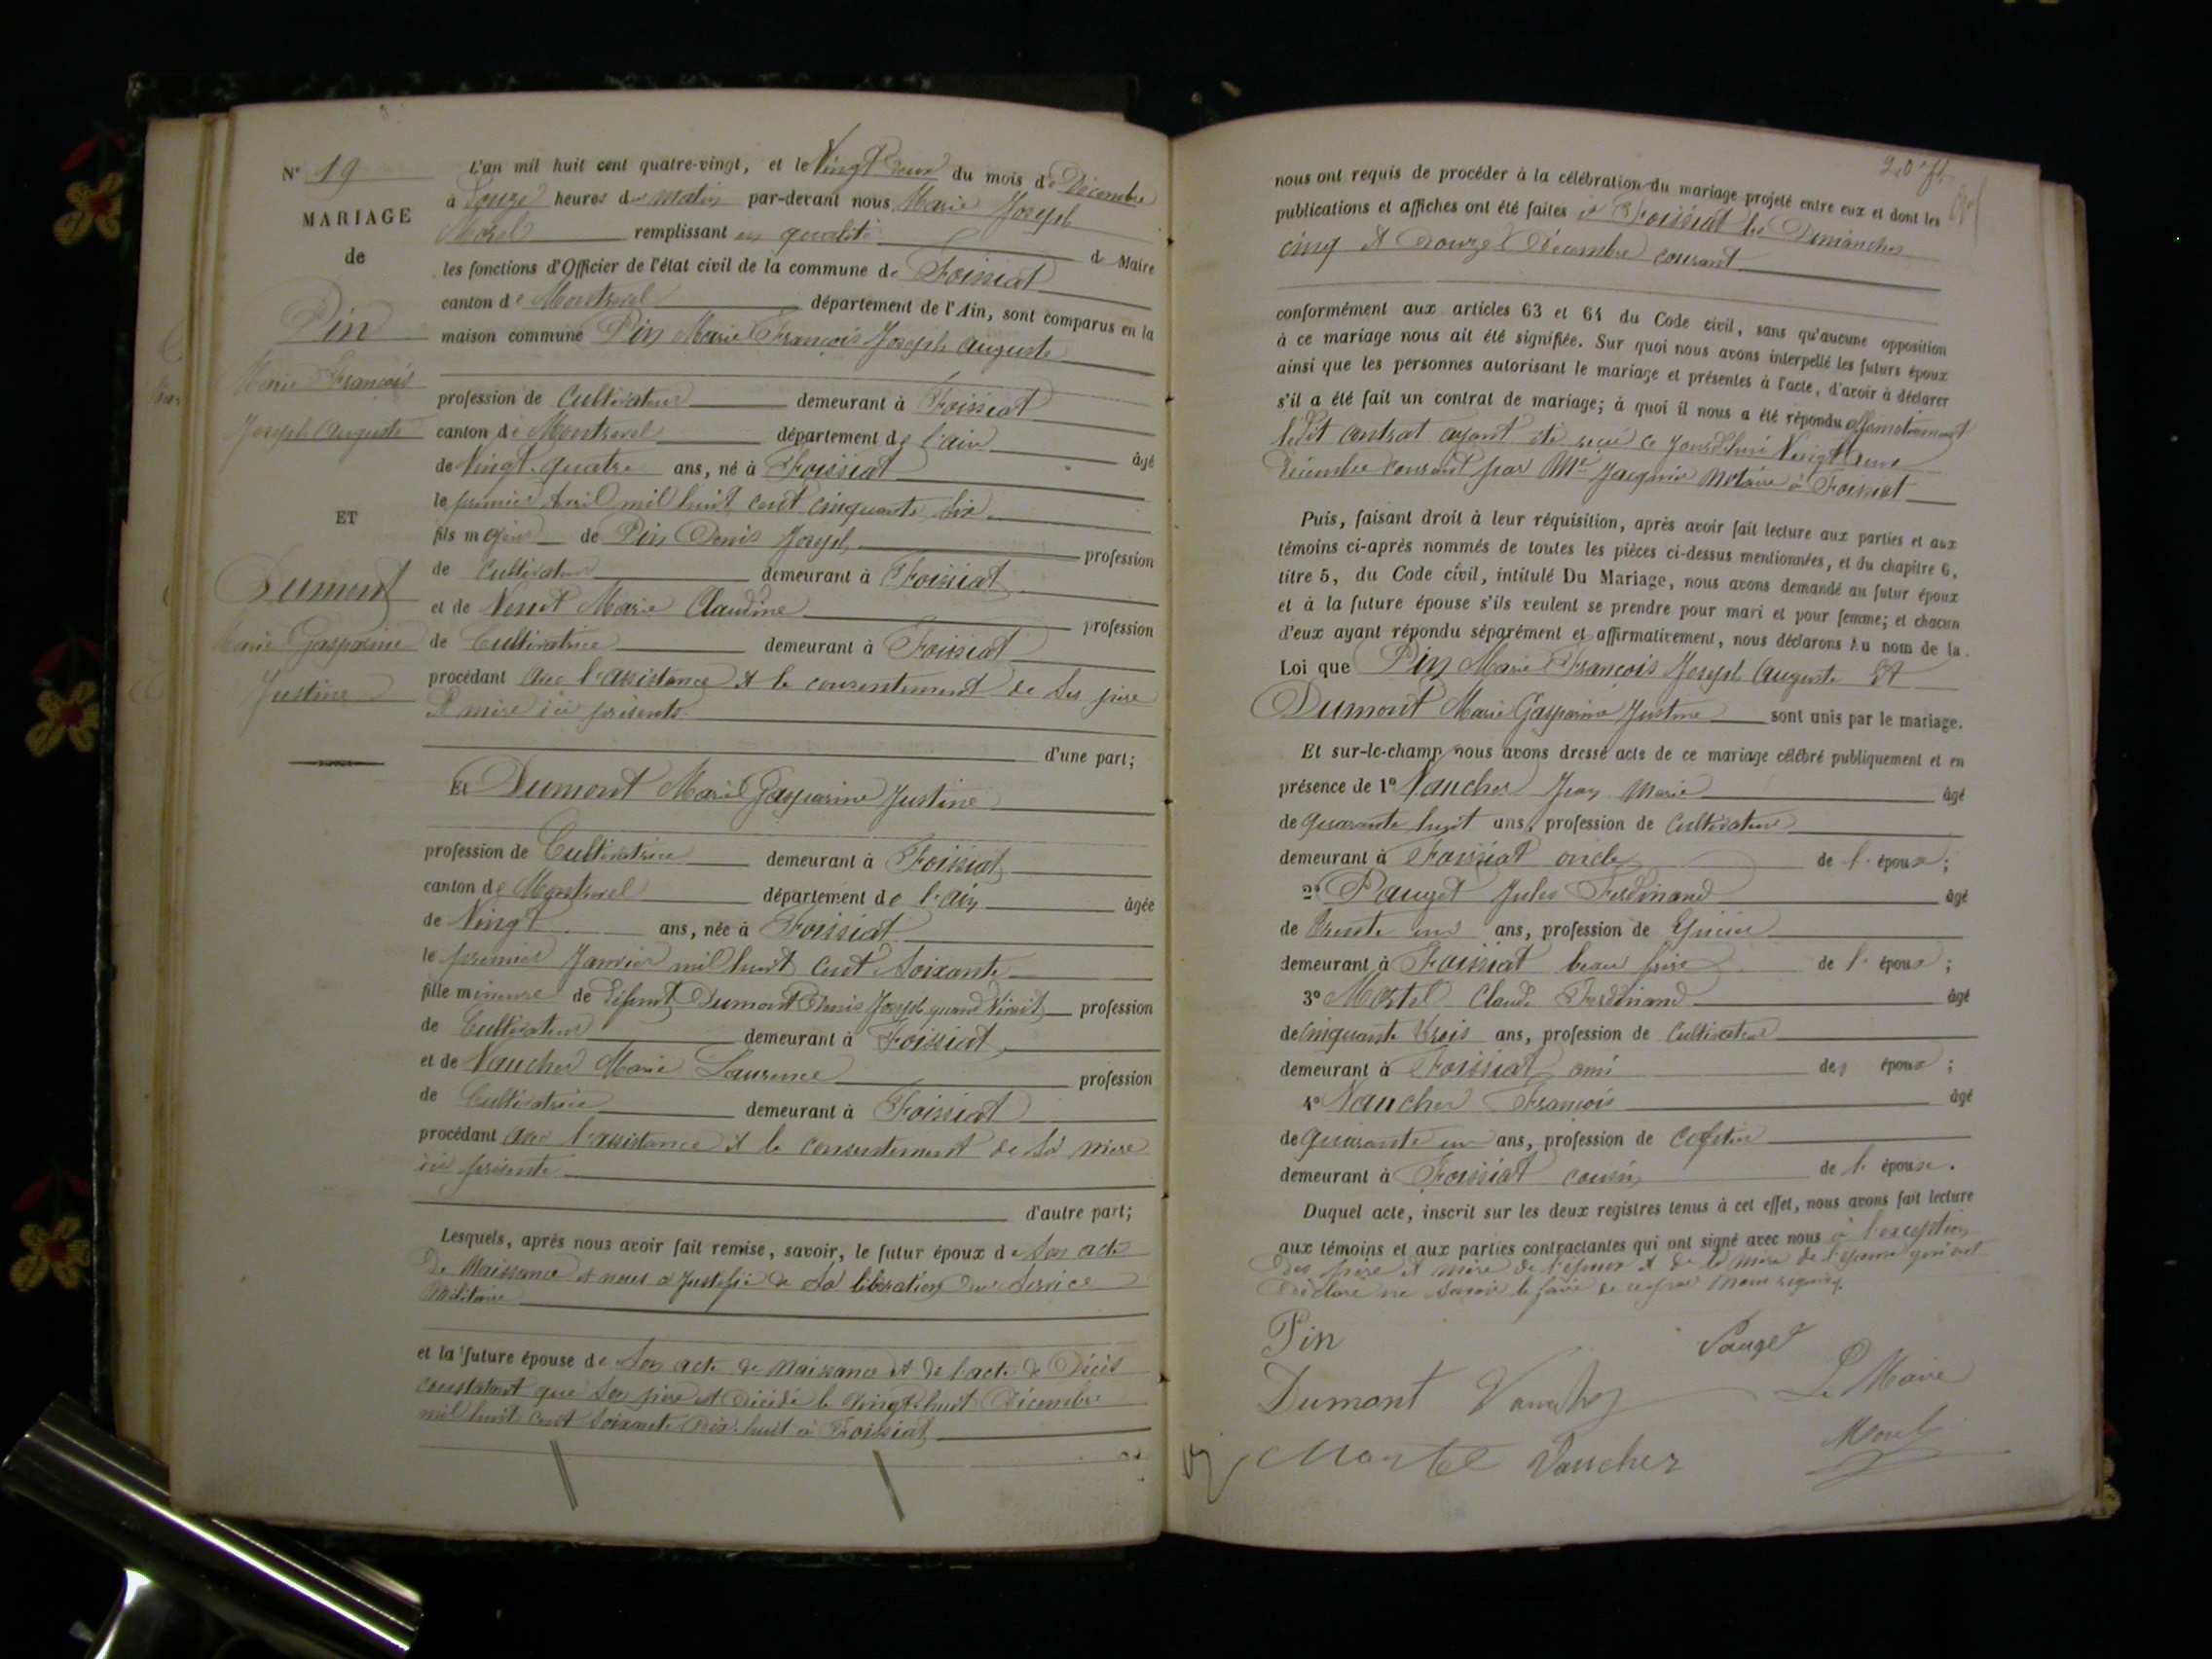 N° 19
MARIAGE
de
Pin
Marie François
Joseph Auguste
ET
Dumont
Marie Gasparine
Justine
L'an mil huit cent quatre-vingt, et le Vingt Deux du mois de Décembre
à heures du matin par-devant nous Marie Joseph
Morel remplissant en qualité de Maire
les fonctions d'Officier de l'état civil de la commune de Foissiat
canton de Montrevel département de l'Ain, sont comparus en la
maison commune Pin Marie François Joseph Auguste
profession de Cultivateur demeurant à Foissiat
canton de Montrevel département de l'ain âgé
de Vingt quatre ans, né à Foissiat
le premier Avril mil huit cent cinquante six
fils majeur de Pin Denis Joseph profession
de Cultivateur demeurant à Foissiat
et de Marie Claudine profession
de Cultivatrice demeurant à Foissiat
procédant avec l'assistance et le consentement de ses père
et mère ici présents
d'une part;
Et Dumont Marie Gasparine Justine
profession de Cultivatrice demeurant à Foissiat
canton de Montrevel département de l'ain âgée
de Vingt ans, née à Foissiat
le premier Janvier mil huit cent soixante
fille mineure de Défunt Dumont Joseph quand Vivait profession
de Cultivateur demeurant à Foissiat
et de Vaucher Marie Laurence profession
de Cultivatrice demeurant à Foissiat
procédant avec l'assistance et le consentement de sa mère
ici présente
d'autre part;
Lesquels, après nous avoir fait remise, savoir, le futur époux de son acte
De Naissance et nous a Justifié de sa libération du service
Militaire
et la future épouse de son acte de naissance et de l'acte de Décès
constatant que son père est décédé le Vingt huit Décembre
mil huit cent soixante dix huit à Foissiat
nous ont requis de procéder à la célébration du mariage projeté entre eux et dont les
publications et affiches ont été faites à Foissiat les Dimanches
cinq et Douze Décembre courant
conformément aux articles 63 et 64 du Code civil, sans qu'aucune opposition
à ce mariage nous ait été signifiée. Sur quoi nous avons interpellé les futurs époux
ainsi que les personnes autorisant le mariage et présentes à l'acte, d'avoir à déclarer
s'il a été fait un contrat de mariage; à quoi il nous a été répondu affirmativement
ledit contrat ayant été reçu ce jourd'hui Vingt Deux
Décembre courant par Me notaire à Foissiat
Puis, faisant droit à leur réquisition, après avoir fait lecture aux parties et aux
témoins ci-après nommés de toutes les pièces ci-dessus mentionnées, et du chapitre 6,
titre 5, du Code civil, intitulé Du Mariage, nous avons demandé au futur époux
et à la future épouse s'ils veulent se prendre pour mari et pour femme; et chacun
d'eux ayant répondu séparément et affirmativement, nous déclarons Au nom de la
Loi que Pin Marie François Joseph Auguste Et
Dumont Marie Gasparine Justine sont unis par le mariage.
Et sur-le-champ nous avons dressé acte de ce mariage célébré publiquement et en
présence de 1° Vaucher Jean Marie âgé
de quarante huit ans, profession de Cultivateur
demeurant à Foissiat oncle de l'épouse;
2° Pauget Jules Ferdinand âgé
de Trente un ans, profession de Epicier
demeurant à Foissiat beau frère de l'époux;
3° Mortel Claude Ferdinand âgé
de Cinquante trois ans, profession de Cultivateur
demeurant à Foissiat ami des époux;
4° Vaucher François âgé
de quarante un ans, profession de
demeurant à Foissiat cousin de l'épouse.
Duquel acte, inscrit sur les deux registres tenus à cet effet, nous avons fait lecture
aux témoins et aux parties contractantes qui ont signé avec nous à l'exception
Des père et mère de l'époux et de la mère de l'épouse qui ont
Déclaré ne savoir le faire de ce
Pin
Pauget
Dumont
Le Maire
Morel
Mortel Vaucher